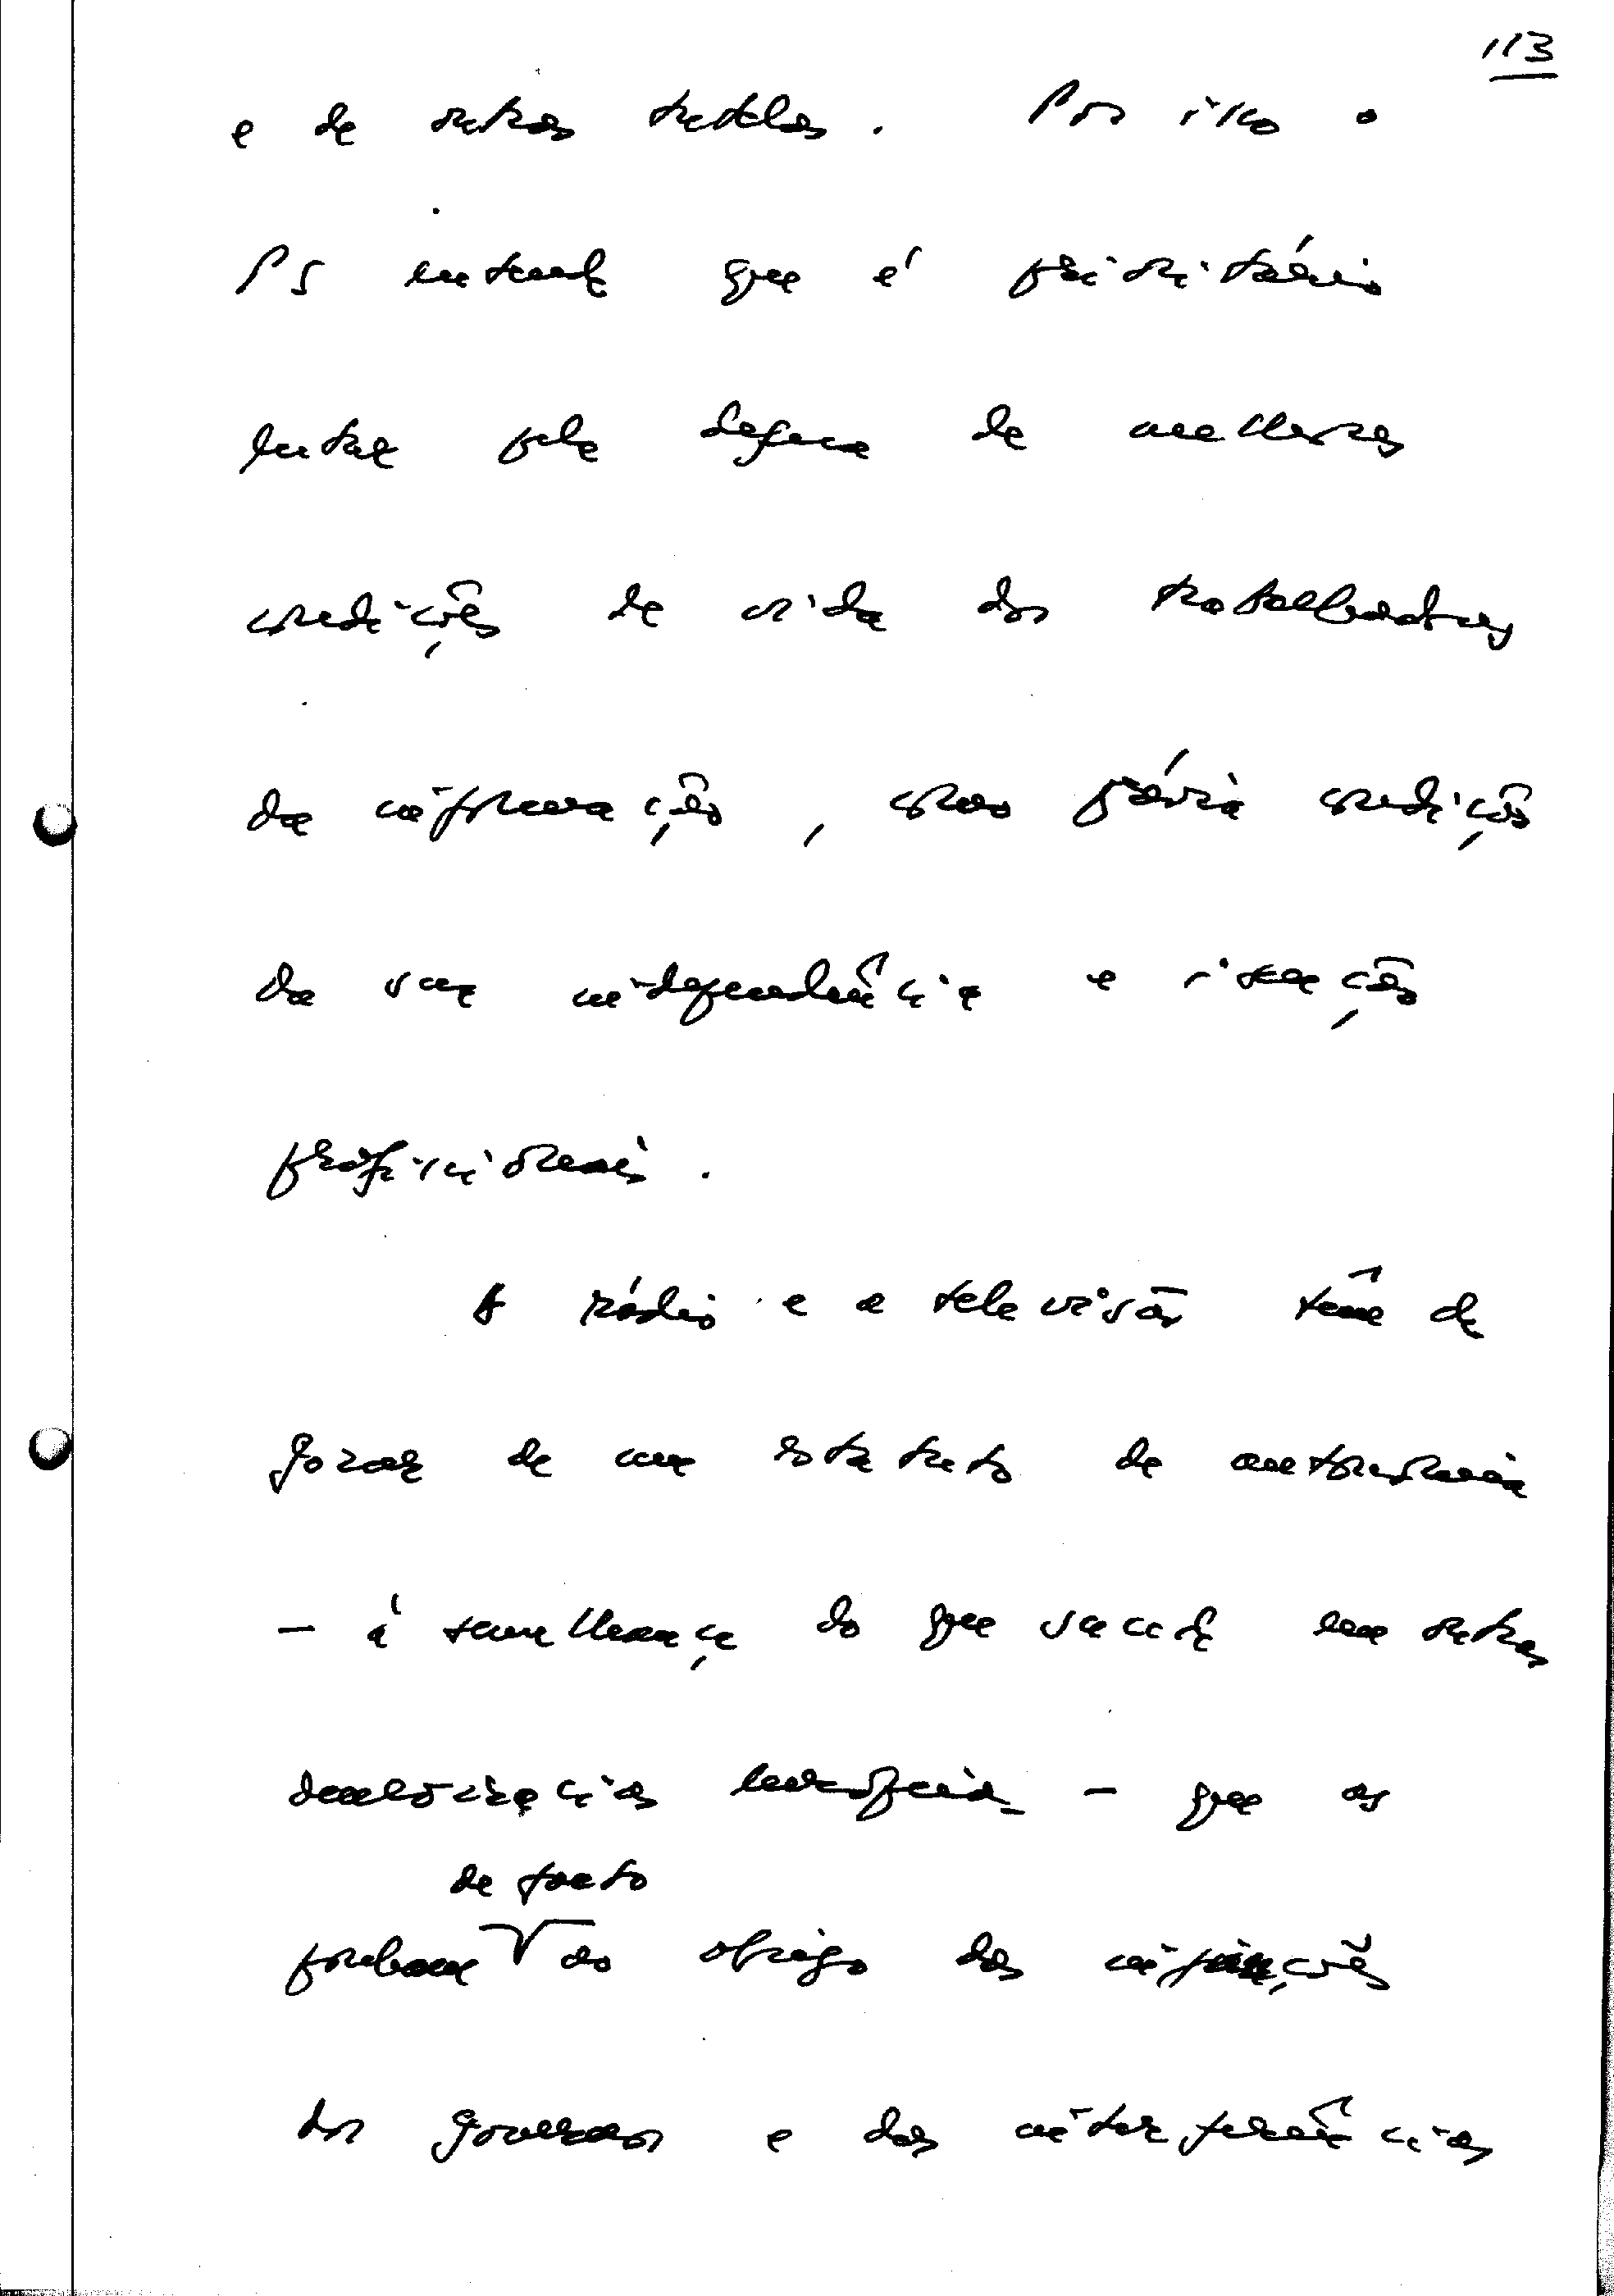 113
e de outras tutelas. Por isso o
PS entende que é prioritário
lutar pela defesa de melhores
condições de vida dos trabalhadores
da informação, como prévia condição
da sua independência e isenção
profissionais.
A rádio e a televisão têm de
gozar de um estatuto de autonomia
- à semelhança do que sucede em outras
democracias europeias - que as
de facto
ponham ao abrigo das injunções
dos governos e das interferências